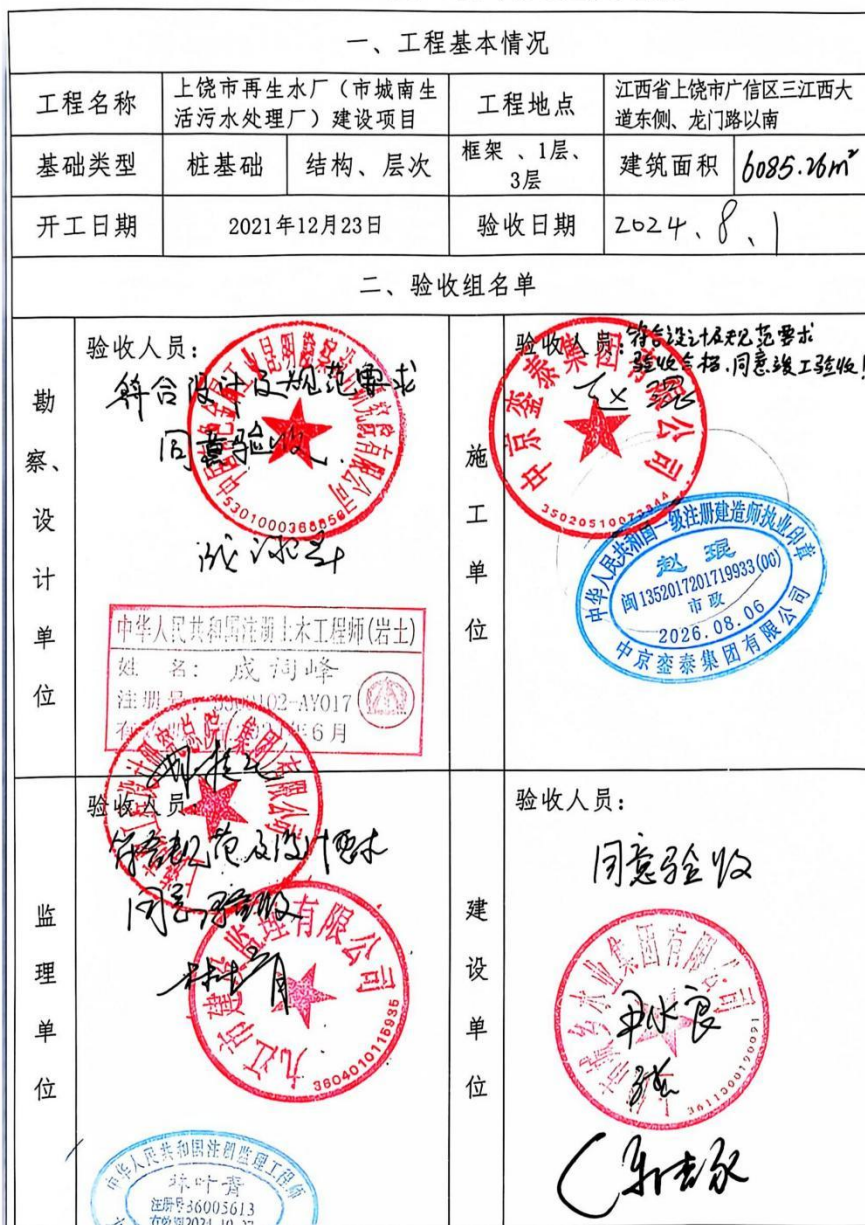 一、工程基本情况
工程名称
上饶市再生水厂（市城南生
活污水处理厂）建设项目
工程地点
江西省上饶市广信区三江西大
道东侧、龙门路以南
基础类型
桩基础
结构、层次
框架 、1层、
3层
建筑面积
6085.26m²
开工日期
2021年12月23日
验收日期
2024、8、1
二、验收组名单
勘察、设计单位
验收人员：
符合设计及规范要求
同意验收
5301000368859
中华人民共和国注册土木工程师(岩土)
姓 名：
注册号
-AY017
年6月
施工单位
验收人员：
符合设计及规范要求
验收合格.同意竣工验收!
赵琨
中京銮泰集团有限公司
35020510073344
中华人民共和国一级注册建造师执业印章
赵琨
闽1352017201719933(00)
市政
2026.08.06
中京銮泰集团有限公司
监理单位
验收人员
符合规范及设计要求
同意验收
林叶青
九江市建设监理有限公司
3604010115935
中华人民共和国注册监理工程师
林叶青
注册号36005613
有效期2024.10.27
建设单位
验收人员：
同意验收
水业集团有限公司
3611000190091